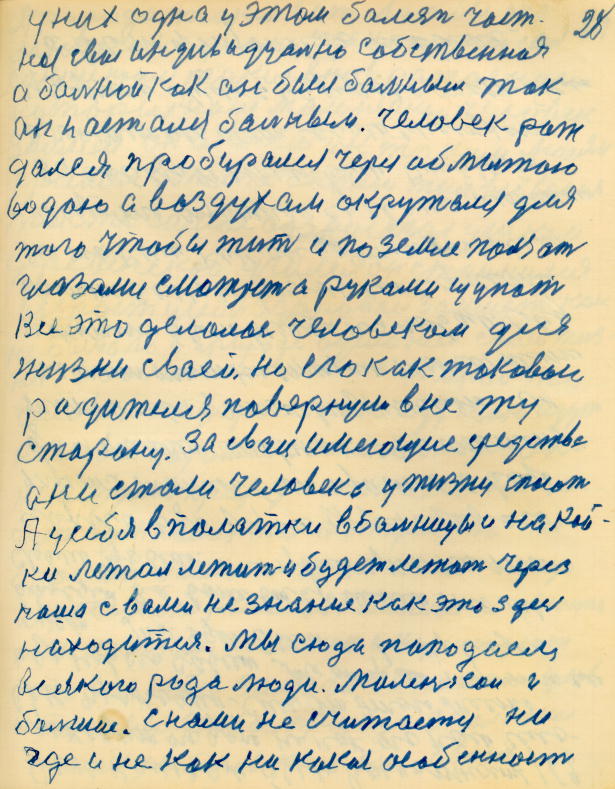 28
у них одна у этом балеят част.
ная своя индивидуально собственная
а балной как он был балным так
он и астался балным. Человек рож
дался пробирался через обмытою
водою а воздухам окружался для
того чтобы жит и по земле ползат
глазами смотрет а руками щупат
Все это делалос человеком для
жизни сваей. Но его как таковаи
радителя повернули в не ту
старону. За сваи имеющие средства
ани стали человека у жизни
А у себя в палатки в балницы и на кой-
ки лежал лежит и будет лежат через
наша с вами не знание как это здес
находится. Мы сюда паподаем
всякого рода люди. Маленкои и
балшие. С нами не считаету ни
где и не как ни какая особенност